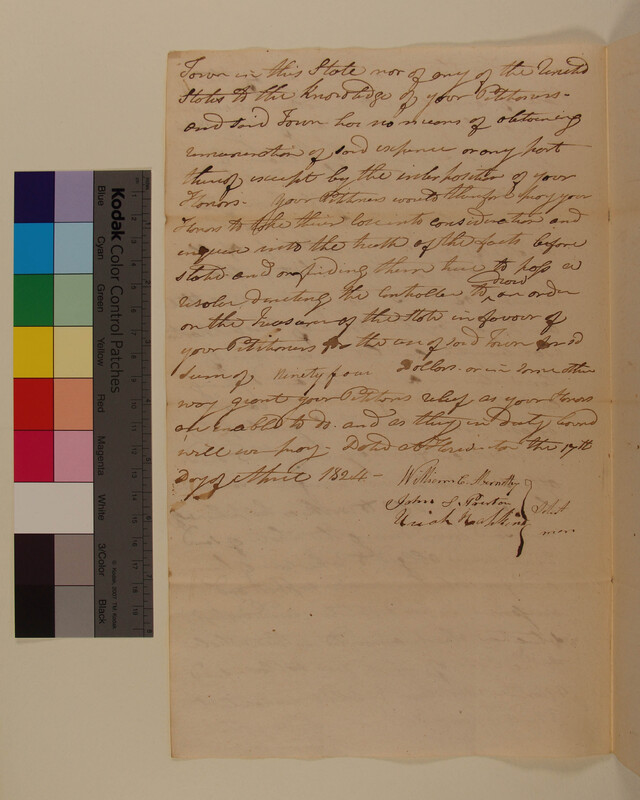 Town in this State nor of any of the United
States to the Knowledge of your Petitioners-
and said Town has no means of obtaining
remuneration of said expence or any part
thereof except by the interposition of your
Honors- your Petitioners would therefore pray your
Honors to take their case into consideration and
enquire into the truth of the facts before
stated and on finding them true to pass a
resolve directing the Controller to draw an order
on the Treasurer of the State in favour of
your Petitioners for the use of said Town for sd
sum of Ninety four Dollars- or in some other
way grant your Petitioners relief as your Honors
are enabled to do- and as they in duty bound
will ever pray- Dated at the 17th
Day of April 1824-
William C. Abernathy
John S. Preston
Uriah Hopkins
Select
men
Kodak Color Control Patches
Blue
Cyan
Green
Yellow
Red
Magenta
White
3/Color
Black
© Kodak, 2007 TM: Kodak